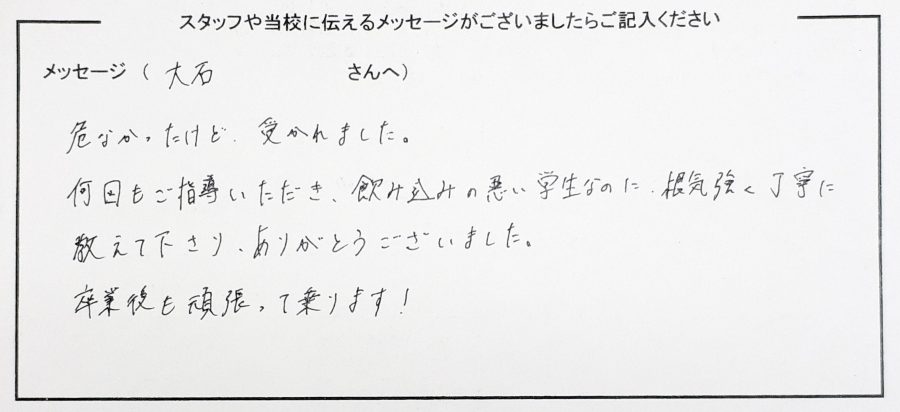 スタッフや当校に伝えるメッセージがございましたらご記入ください
メッセージ（ 大石 さんへ）
危なかったけど、受かれました。
何回もご指導いただき、飲み込みの悪い学生なのに、根気強く丁寧に
教えて下さり、ありがとうございました。
卒業後も頑張って乗ります！